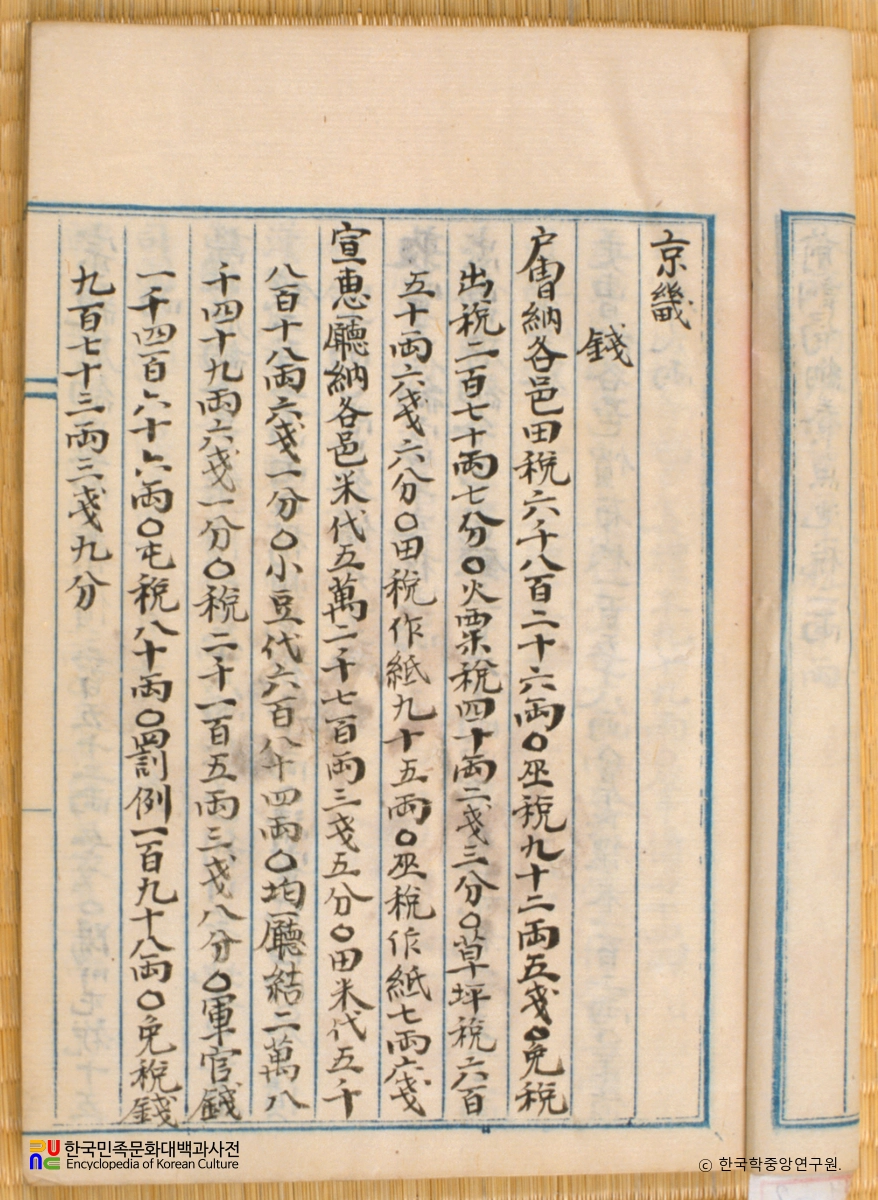 京畿
錢
戶曹納各邑田稅六千八百二十六両○巫稅九十二両五戔○免稅
出稅二百七十両七分○火粟稅四十両二戔三分○草坪稅六百
五十両六戔六分○田稅作紙九十五両○巫稅作紙七両六戔
宣惠廳納各邑米代五萬二千七百両三戔五分○田米代五千
八百十八両六戔一分○小豆代六百八十四両○均廳結二萬八
千四十九両六戔一分○稅二千一百五両三戔八分○軍官錢
一千四百六十六両○屯稅八十両○罰例一百九十八両○免稅錢
九百七十三両三戔九分
한국민족문화대백과사전
Encyclopedia of Korean Culture
© 한국학중앙연구원.